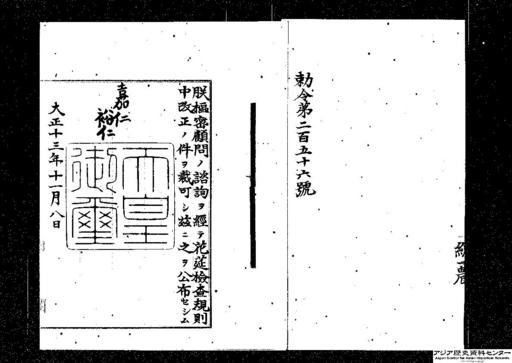 勅令第二百五十六號
朕樞密顧問ノ諮詢ヲ經テ花莚檢査規則
中改正ノ件ヲ裁可シ玆ニ之ヲ公布セシム
嘉仁
裕仁
天皇
御璽
大正十三年十一月八日
アジア歴史資料センター
Japan Center for Asian Historical Records